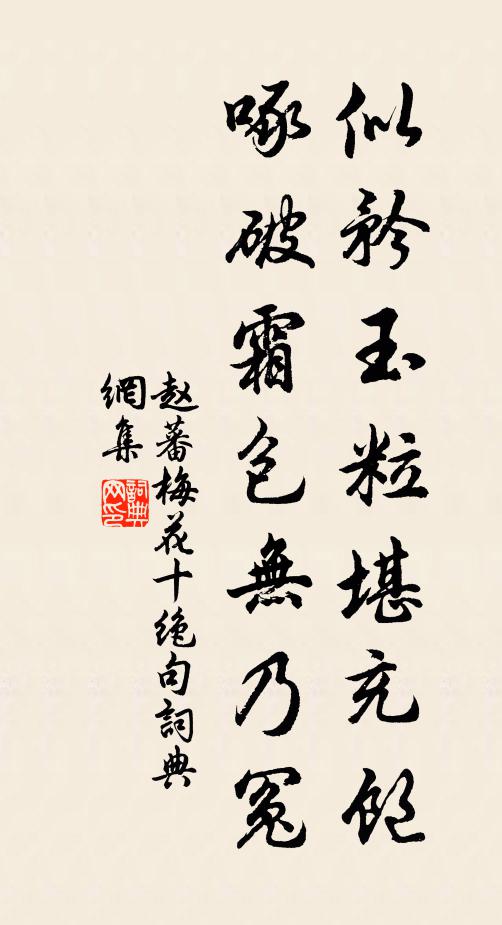 似矜玉粒堪充飽
啄破霜包無乃冤
赵蕃梅花十绝句詞典
網集
詞典
网印